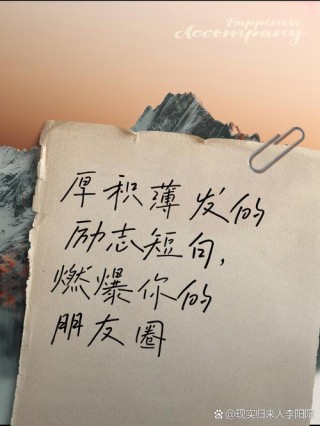 Happiness
Accompany
厚积薄发的
励志短句，
燃爆你的
朋友圈
@现实归来人李阳阳